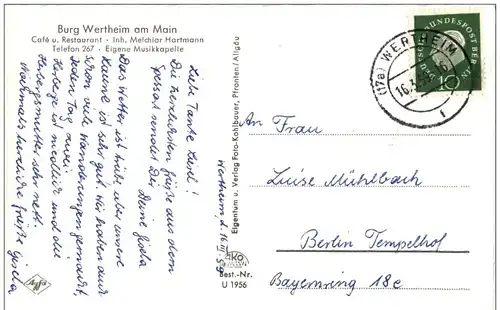 Burg Wertheim am Main
Café u. Restaurant · Inh. Melchior Hartmann
Telefon 267 · Eigene Musikkapelle
Liebe Tante Luise!
Die herzlichsten Grüße aus dem
Spessart sendet Dir
Deine Gisela
Das Wetter ist trübe aber unsere
Laune ist sehr gut. Wir haben auch
schon viele Wanderungen gemacht,
jeden Tag zwei.
Herberge ist niedlich und die
Herbergsmutter sehr nett.
Nochmals herzliche Grüße Gisela
Wertheim d. 16.III.59
Eigentum u. Verlag Foto-Kohlbauer, Pfronten/Allgäu
Agfa
Best.-Nr.
U 1956
(17a) WERTHEIM
16.
DEUTSCHE BUNDESPOST BERLIN
10
An Frau
Luise Mühlbach
Berlin Tempelhof
Bayernring 18c